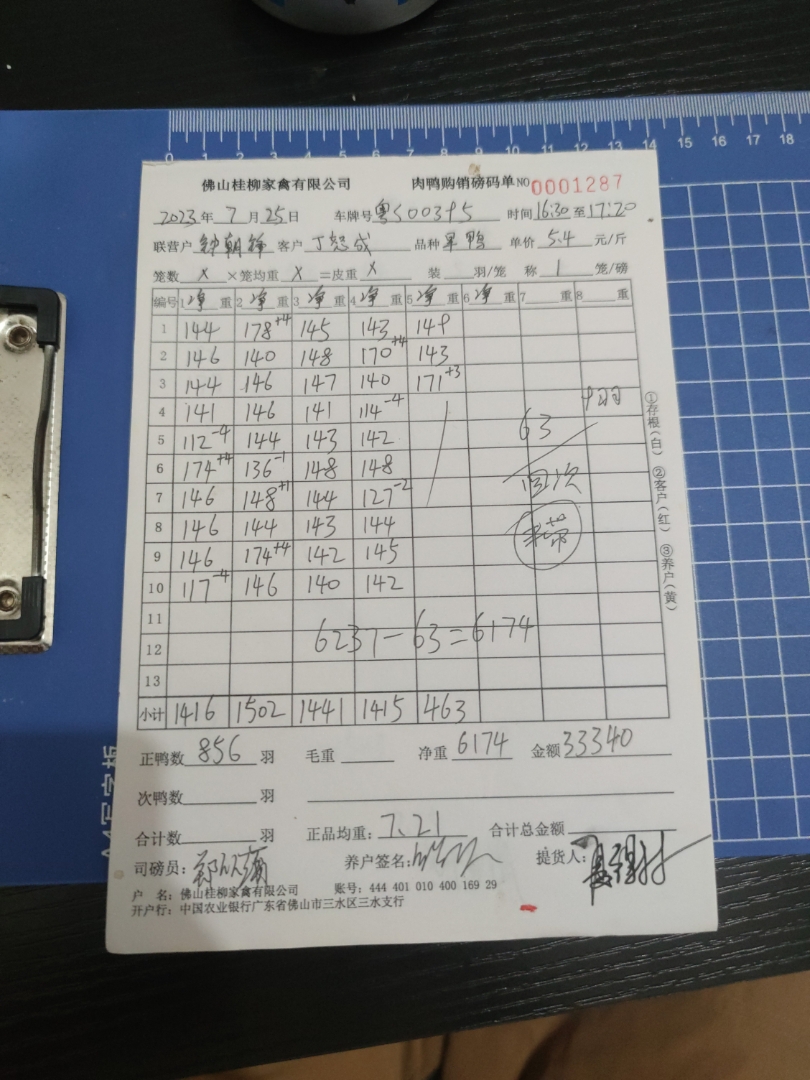 佛山桂柳家禽有限公司 肉鸭购销磅码单 NO 0001287
2023年7月25日 车牌号 粤S00395 时间16:30至17:20
联营户 钟朝 客户 丁 成 品种 果鸭 单价 5.4 元/斤
笼数 x ×笼均重 x =皮重 x 装 羽/笼 称 1 笼/磅
编号 1 净 重 2 净 重 3 净 重 4 净 重 5 净 重 6 净 重 7 重 8 重
1 144 178+4 145 143 149
2 146 140 148 170+4 143
3 144 146 147 140 171+3
4 141 146 141 114-4
5 112-4 144 143 142 63
6 174+4 136-1 148 148
7 146 148+1 144 127-2
8 146 144 143 144
9 146 174+4 142 145
10 117-4 146 140 142
11
12 6237-63=6174
13
小计 1416 1502 1441 1415 463
正鸭数 856 羽 毛重 净重 6174 金额 33340
次鸭数 羽
合计数 羽 正品均重: 7.21 合计总金额
司磅员: 养户签名: 提货人:
户 名: 佛山桂柳家禽有限公司 账号: 444 401 010 400 169 29
开户行: 中国农业银行广东省佛山市三水区三水支行
①存根(白) ②客户(红) ③养户(黄)
0 1 2 3 4 5 6 7 8 9 10 11 12 13 14 15 16 17 18